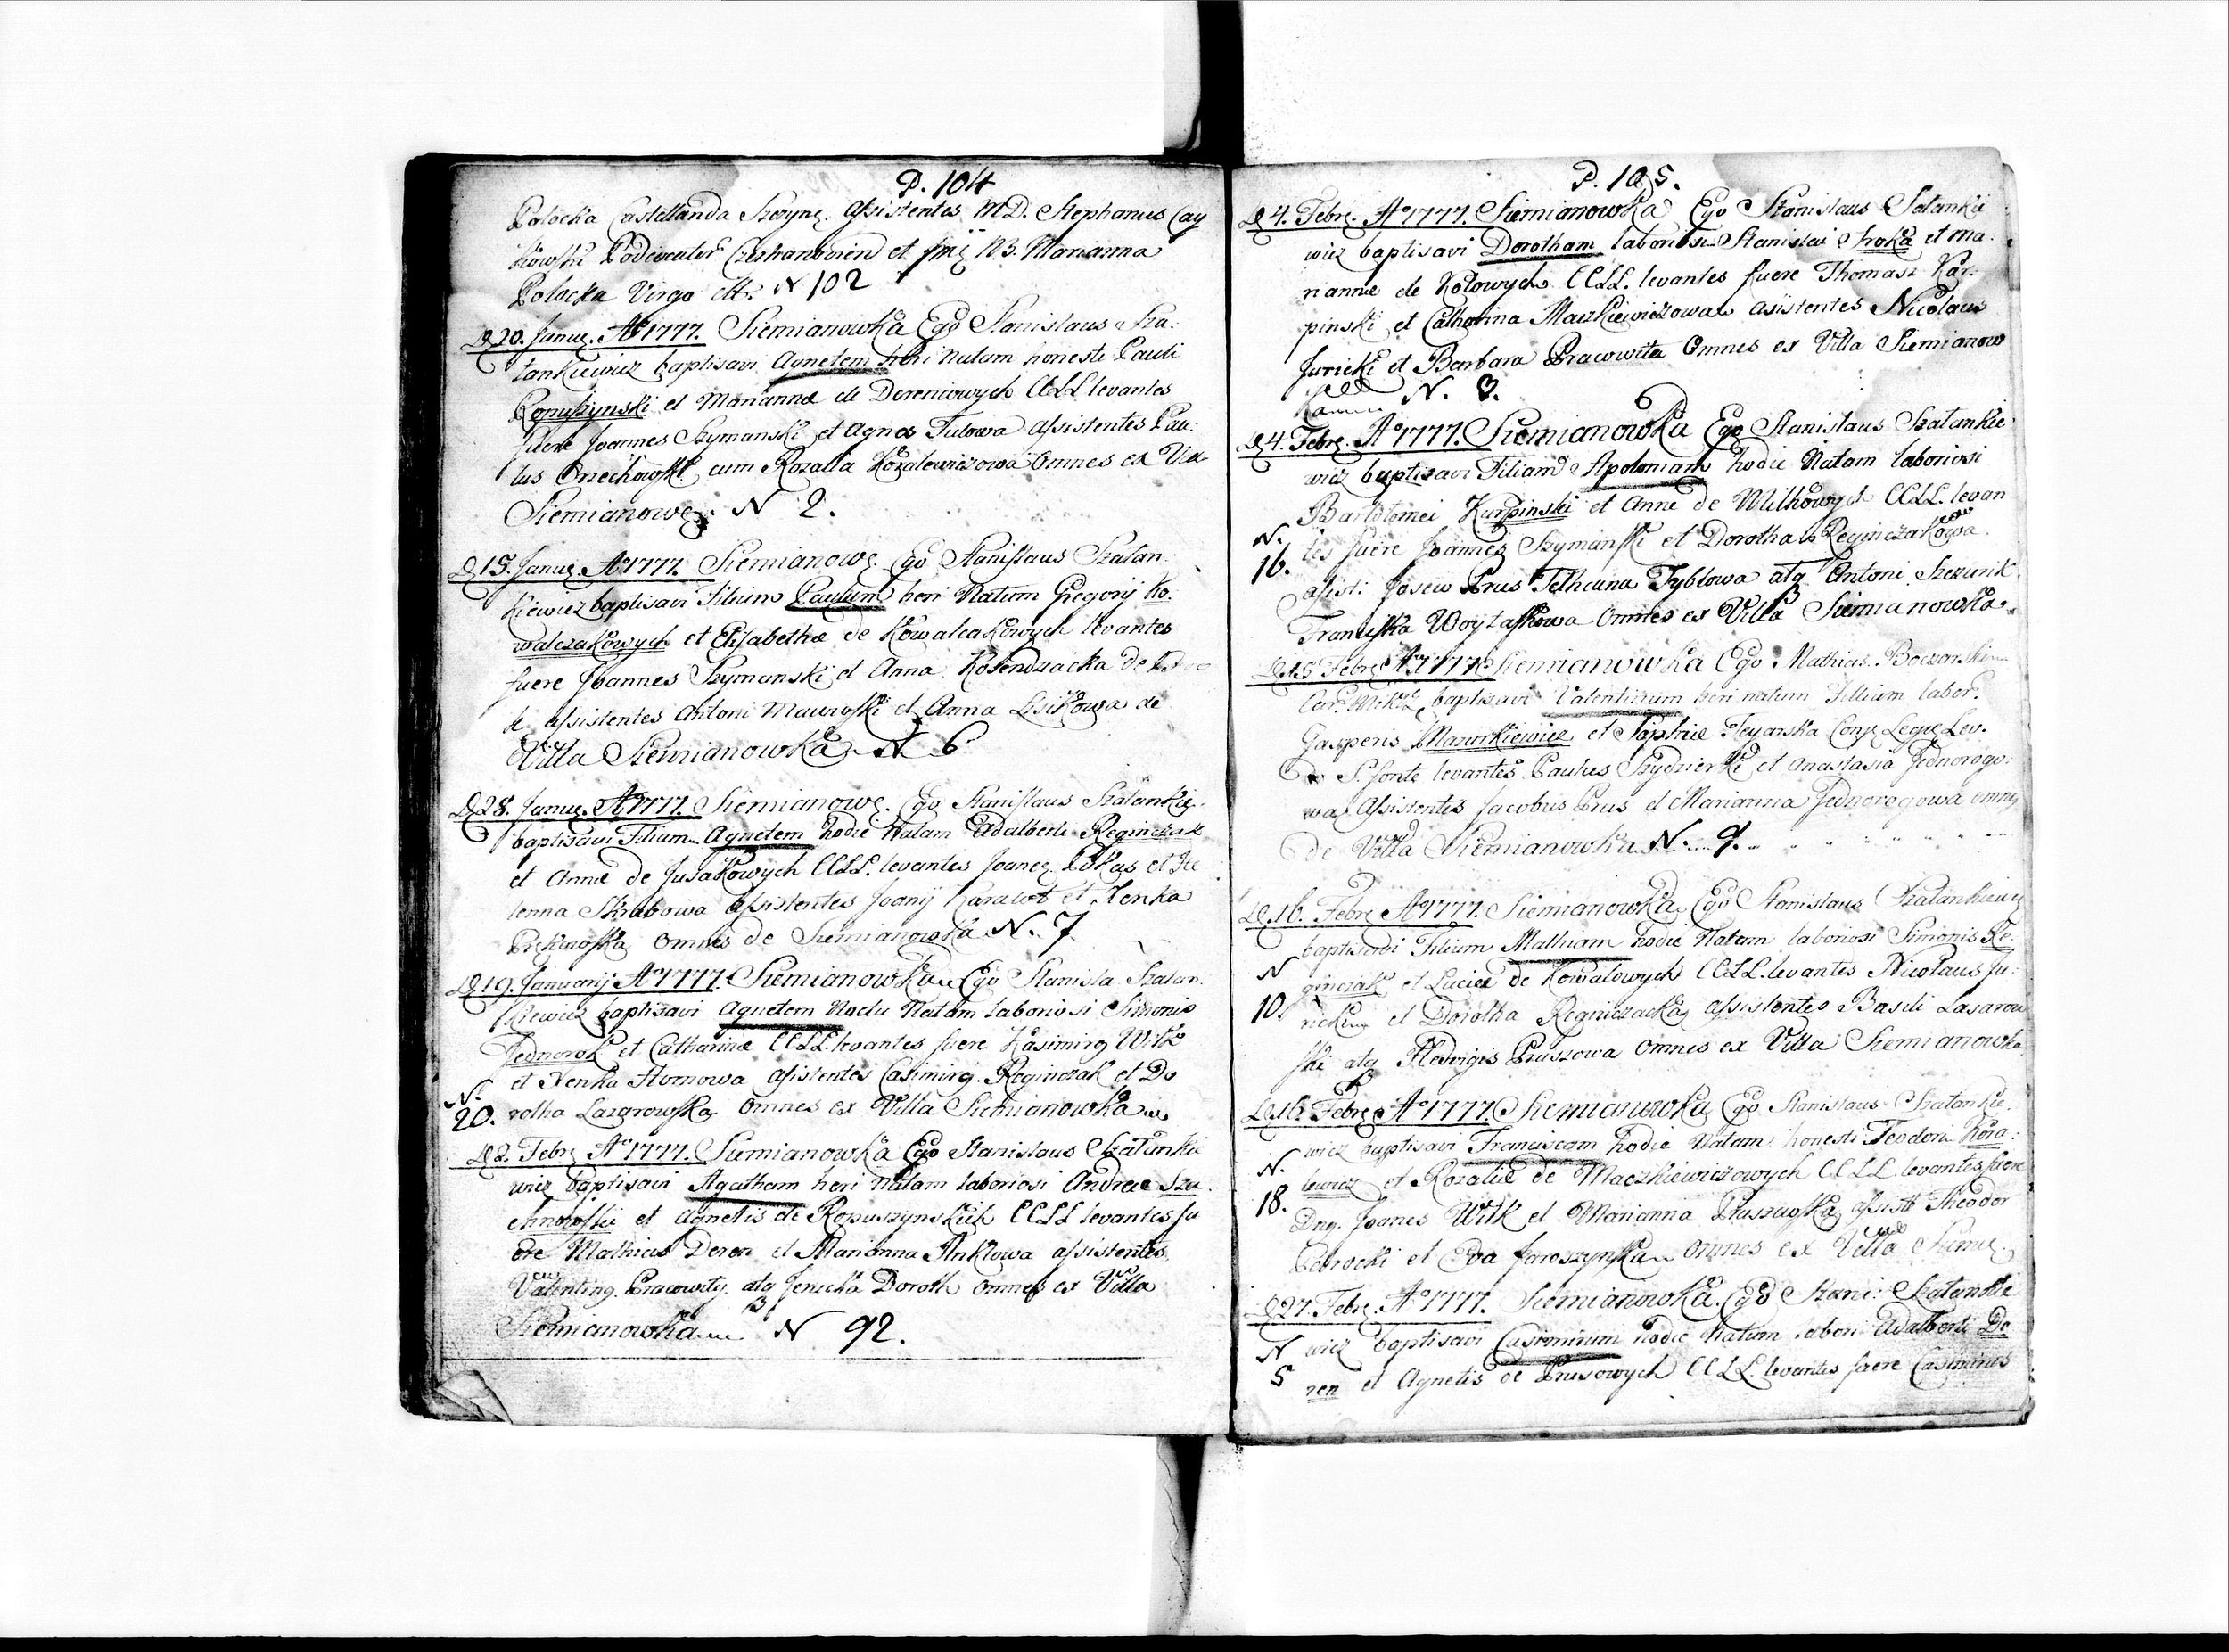 P. 104
Potocka Castellanda assistentes M.D. Stephanus Czay
kowski et N.B. Marianna
Potocka Virgo N 102
D 20. Janu. Aº 1777. Siemianowka Ego Stanislaus Sza:
tankiewicz baptisavi Agnetem heri natam honesti Pauli
Ropuszynski et Marianna de Dereniowych CCLL levantes
fuere Joannes Szymanski et Agnes Tutowa assistentes Pau:
lus Orzechowski cum Rozalia Kozalewiczowa Omnes ex Vil
Siemianow. N 2.
D 15. Janu. Aº 1777. Siemianow. Ego Stanislaus Szatan:
kiewicz baptisavi Filium Paulum heri Natum Gregory Ko:
walczakowych et Elisabethæ de Kowalczakowych levantes
fuere Joannes Szymanski et Anna de
assistentes Antoni et Anna Lisikowa de
Villa Siemianowka N 6
D 28. Janu. Aº 1777. Siemianow. Ego Stanislaus Szatankie.
baptisavi Filiam Agnetem hodie Natam Adalberti Reginczak
et Annæ de Jusakowych CCLL. levantes et He
lenna Skrabowa assistentes et Xenka
Omnes de Siemianowka N. 7
D 19. January Aº 1777. Siemianowka Ego Stanisla Szatan
kiewicz baptisavi Agnetem Natam laboriosi Simonis
Jednorok et Catharinæ CCLL. levantes fuere Kasimirg Witk
et Xenka Homowa asistentes Casimirg. Reginczak et Do
N.
20. rotha Lazarowska omnes ex Villa Siemianowka
D 2. Febr. Aº 1777. Siemianowka Ego Stanislaus Szatankie
wicz baptisavi Agatham heri Natam laboriosi Andreae Sza
chnowski et Agnetis de Ropuszynskich CCLL levantes fu
ere Mathias Deren et Marianna Anklowa assistentes
Valenting. Pracowity atq Doroth omnes ex Villa
Siemianowka N 92.
P. 105.
D 4. Febr. Aº 1777. Siemianowka Ego Stanislaus Satankie
wicz baptisavi Dorotham laboriosi Stanislai Sroka et Ma.
riannæ de Kotowych CCLL. levantes fuere Thomasz Kar:
pinski et Catharina Maczkiewiczowa asistentes Nicolaus
Juricki et Barbara Pracowita Omnes ex Villa Siemianow
N. 3.
D 4. Febr. Aº 1777. Siemianowka Ego Stanislaus Szatankie
wicz baptisavi Filiam Apoloniam hodie Natam laboriosi
Bartolomei Karpinski et Anne de Witkowych CCLL. levan
N. tes fuere Joannes Szymanski et Dorotha Reginczakowa
16. asist: Josew Prus Tyblowa atq Antoni Szczurik
Franciska Woytaskowa Omnes ex Villa Siemianowka
D 15 Febr. Aº 1777 Siemianowka Ego Mathias
baptisavi Valentinum heri natum Filium labor.
Gasperis Mazurkiewicz et Conj. Legit. Lev.
De S. fonte levantes Paulus et Anastasia Jednorogo:
wa Assistentes Jacobus Prus et Marianna Jednorogowa omnes
de Villa Siemianowka N. 9.
D 16. Febr. Aº 1777. Siemianowka Ego Stanislaus Szatankiewicz
baptisavi Filium Mathiam hodie Natum laboriosi Simonis Re:
N ginczak et Luciæ de Kowalowych CCLL. levantes Nicolaus Ju:
10. ricki et Dorotha Reginiczacka assistentes Basili Lasarow
ski atq Hedvigis Prusowa Omnes ex Villa Siemianowka
D 16. Febr. Aº 1777. Siemianowka Ego Stanislaus Szatankie.
N. wicz baptisavi Franciscam hodie Natam honesti Teodori Koza:
lewicz et Rozaliæ de Maczkiewiczowych CCLL levantes fuere
18. Dng. Joanes Witk et Marianna assist Theodor
et Eva Jaroszynska omnes ex Villa Siemi.
D 27. Febr. Aº 1777. Siemianowka. Ego Stani: Szatankie
N wicz baptisavi Casimirum hodie Natum labori Adalberti De
5 ren et Agnetis de Prusowych CCLL. levantes fuere Casimirus